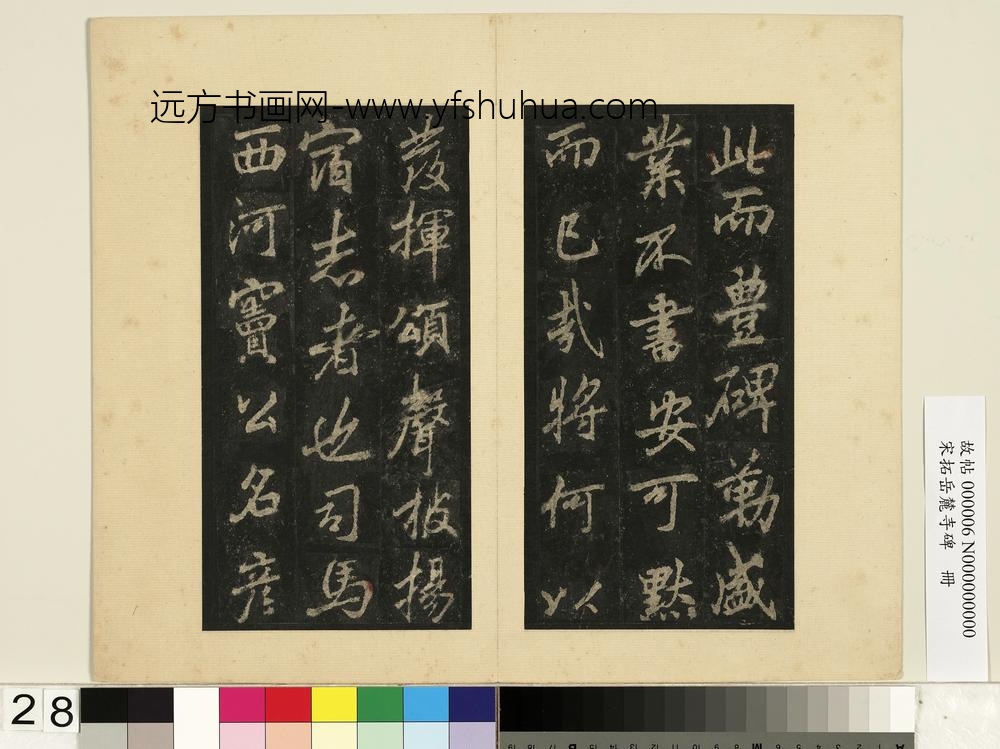 远方书画网-www.yfshuhua.com
此而豐碑勒盛
業不書安可默
而已哉將何以
發揮頌聲披揚
宿志者也司馬
西河竇公名彦
故帖 000006 N000000000
宋拓岳麓寺碑 冊
28